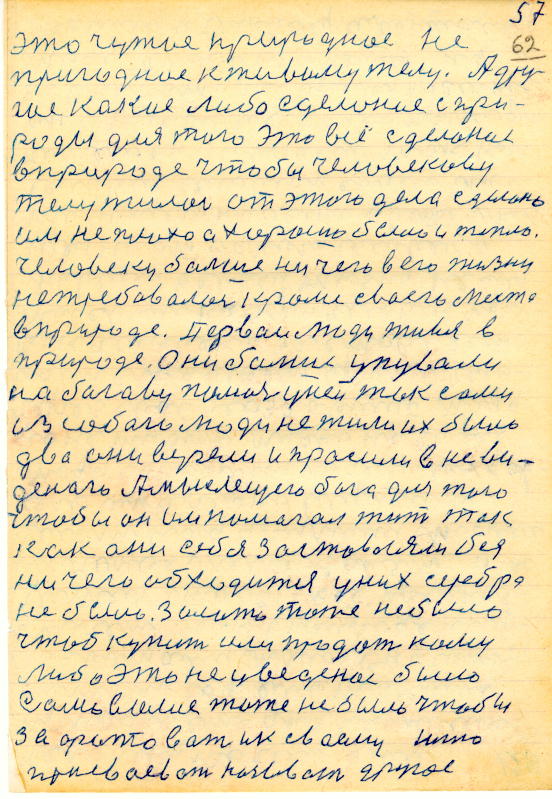 57
62
это чужое природное не
пригодное к живому телу. А дру-
гое какое либо сделоное с при-
роды для того Это всё сделоное
в природе чтобы человекову
телу жилос от этого дела сделоно
им не плохо а хорошо было и тепло.
Человеку болше ничего в его жизни
нетребовалос кроме своего места
в природе. Первои люди жили в
природе. Они болше упували
на богаву помоч у ней так сами
из собаю люди не жили их было
два они верели и просили в неви-
денаго Амыслещего бога для того
чтобы он им помогал жит так
как они себя заставляли без
ничего обходится у них серебра
не было. Золото тоже небыло
чтоб купит или продот кому
либо Это не уведеное было
Самовмие тоже не было чтобы
за
к своему
другое